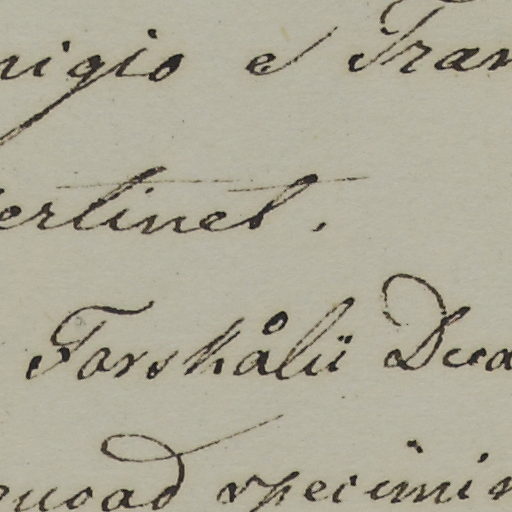 nigio et Fran
ertinet.
Forskålii Dua
quoad specimin